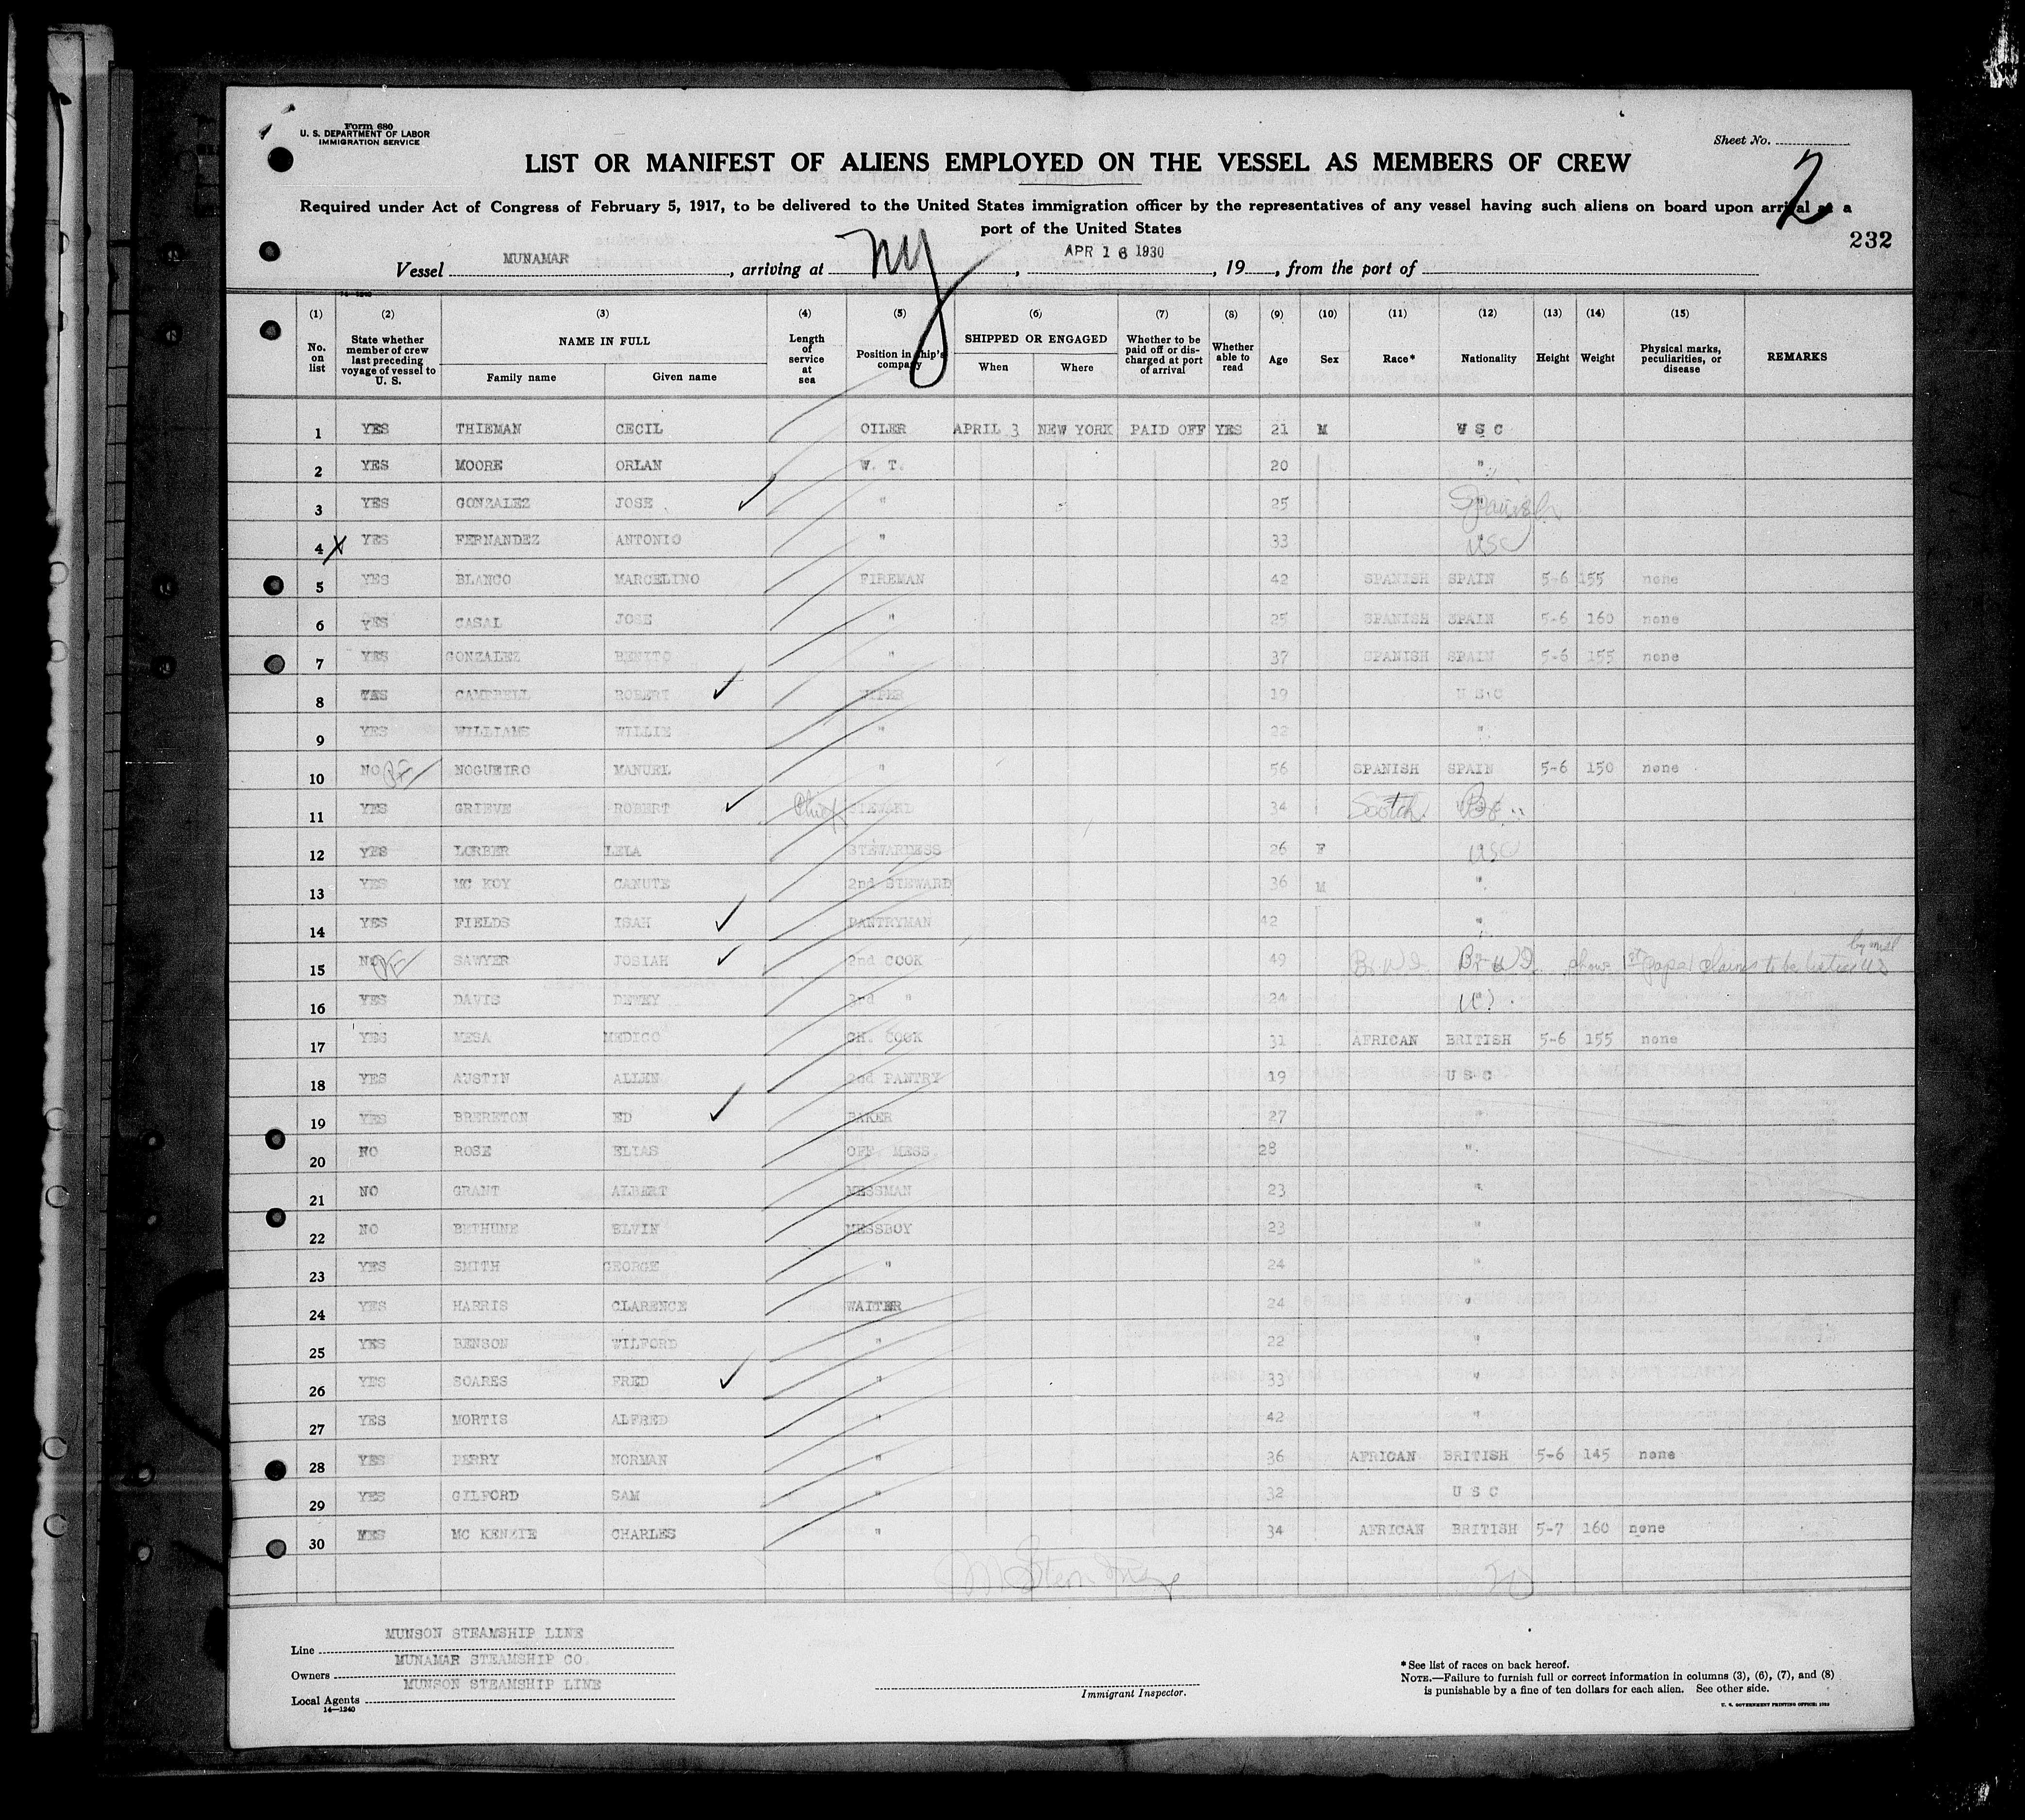 Form 680
U. S. DEPARTMENT OF LABOR
IMMIGRATION SERVICE
Sheet No.
2
LIST OR MANIFEST OF ALIENS EMPLOYED ON THE VESSEL AS MEMBERS OF CREW
Required under Act of Congress of February 5, 1917, to be delivered to the United States immigration officer by the representatives of any vessel having such aliens on board upon arrival at a
port of the United States
232
Vessel MUNAMAR, arriving at NY, APR 16 1930, 19, from the port of
14-1240
(1) (2) (3) (4) (5) (6) (7) (8) (9) (10) (11) (12) (13) (14) (15)
No. on list State whether member of crew last preceding voyage of vessel to U. S. NAME IN FULL Family name Given name Length of service at sea Position in ship's company SHIPPED OR ENGAGED When Where Whether to be paid off or discharged at port of arrival Whether able to read Age Sex Race* Nationality Height Weight Physical marks, peculiarities, or disease REMARKS
1 YES THIEMAN CECIL OILER APRIL 3 NEW YORK PAID OFF YES 21 M U S C
2 YES MOORE ORLAN W. T. 20 "
3 YES GONZALEZ JOSE " 25 " Spanish
4 X YES FERNANDEZ ANTONIO " 33 " USC
5 YES BLANCO MARCELINO FIREMAN 42 SPANISH SPAIN 5-6 155 none
6 YES CASAL JOSE " 25 SPANISH SPAIN 5-6 160 none
7 YES GONZALEZ BENITO " 37 SPANISH SPAIN 5-6 155 none
8 YES CAMPBELL ROBERT WIPER 19 U S C
9 YES WILLIAMS WILLIE " 22 "
10 NO NOGUEIRO MANUEL " 56 SPANISH SPAIN 5-6 150 none
11 YES GRIEVE ROBERT Chief STEWARD 34 Scotch Br.
12 YES LORBER LELA STEWARDESS 26 F USC
13 YES MC KOY CANUTE 2nd STEWARD 36 M "
14 YES FIELDS ISAH PANTRYMAN 42 "
15 NO SAWYER JOSIAH 2nd COOK 49 Br. W I. Br W I. shows 1st paper claims to be listed US
16 YES DAVIS DEWEY 3rd " 24 "
17 YES MESA MEDICO CH. COOK 31 AFRICAN BRITISH 5-6 155 none
18 YES AUSTIN ALLEN 2nd PANTRY 19 U S C
19 YES BRERETON ED BAKER 27 "
20 NO ROSE ELIAS OFF. MESS. 28 "
21 NO GRANT ALBERT MESSMAN 23 "
22 NO BETHUNE ELVIN MESSBOY 23 "
23 YES SMITH GEORGE " 24 "
24 YES HARRIS CLARENCE WAITER 24 "
25 YES BENSON WILFORD " 22 "
26 YES SOARES FRED " 33 "
27 YES MORTIS ALFRED " 42 "
28 YES PERRY NORMAN " 36 AFRICAN BRITISH 5-6 145 none
29 YES GILFORD SAM " 32 U S C
30 YES MC KENZIE CHARLES " 34 AFRICAN BRITISH 5-7 160 none
Line MUNSON STEAMSHIP LINE
Owners MUNAMAR STEAMSHIP CO.
Local Agents MUNSON STEAMSHIP LINE
14—1240
Immigrant Inspector.
* See list of races on back hereof.
NOTE.—Failure to furnish full or correct information in columns (3), (6), (7), and (8)
is punishable by a fine of ten dollars for each alien. See other side.